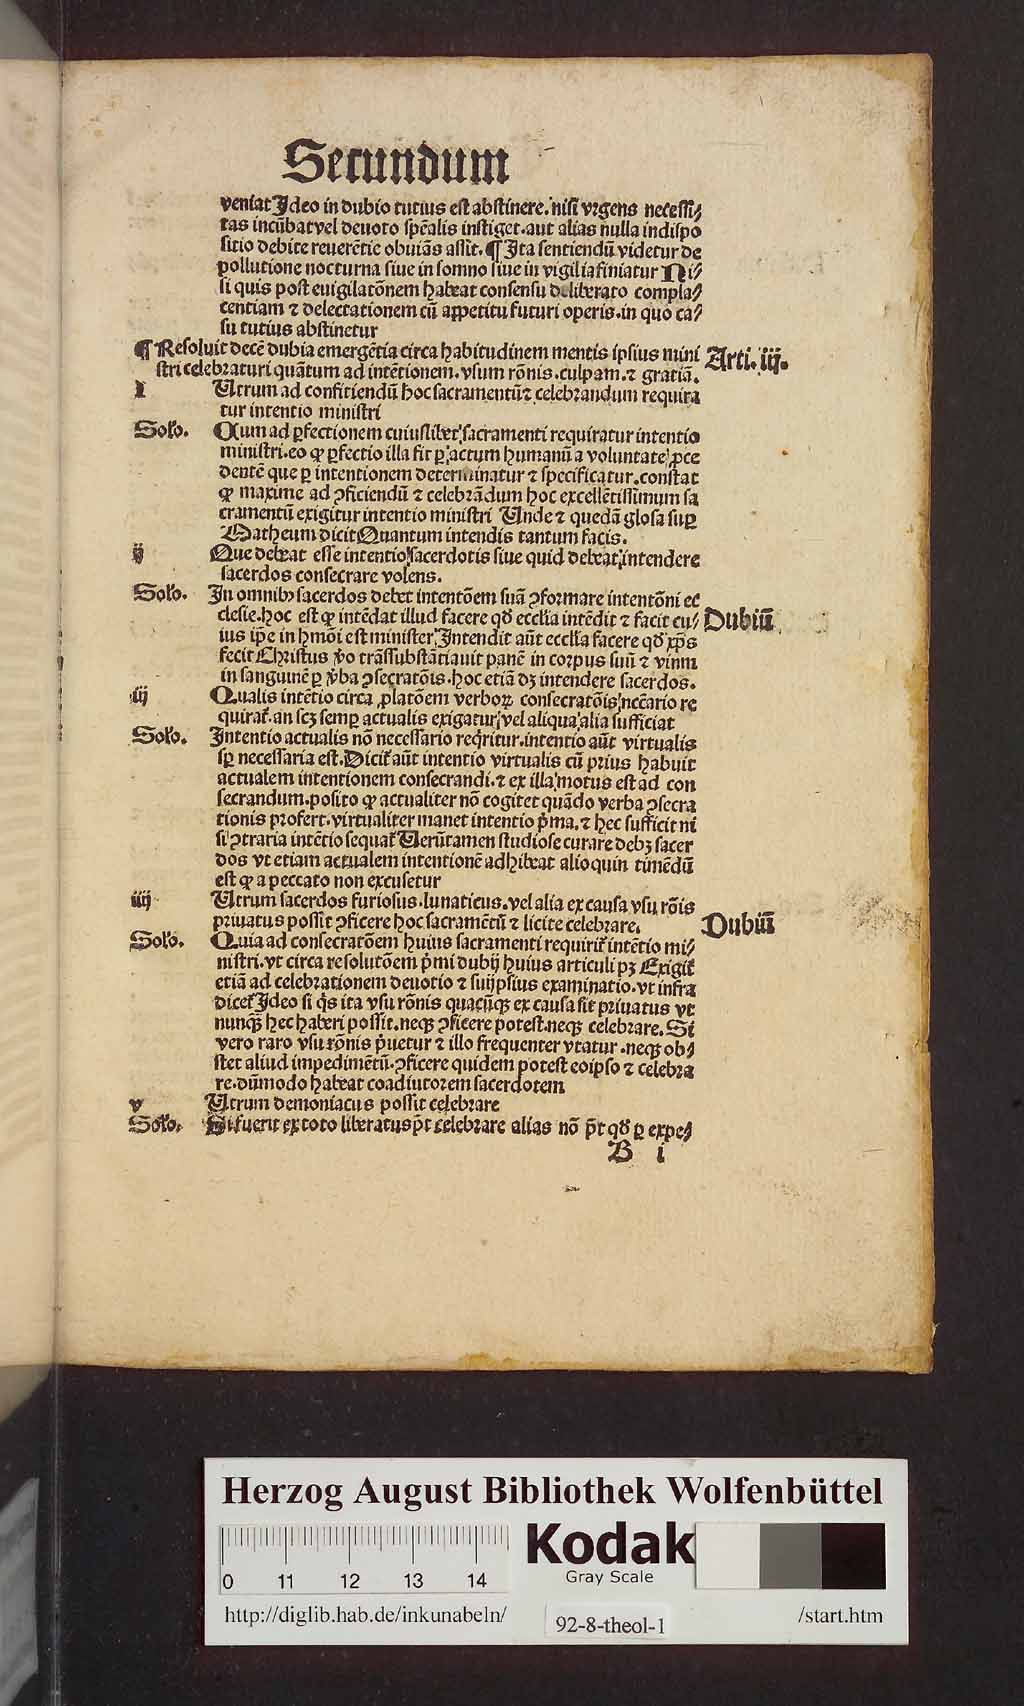 Secundum
veniat Ideo in dubio tutius est abstinere. nisi vrgens necessi⸗
tas incūbat vel deuoto spēalis instiget. aut alias nulla indispo
sitio debite reuerētie obuiās assit. ¶ Ita sentiendū videtur de
pollutione nocturna siue in somno siue in vigilia finiatur Ni⸗
si quis post euigilatōnem habeat consensu deliberato compla⸗
centiam ⁊ delectationem cū appetitu futuri operis. in quo ca⸗
su tutius abstinetur
¶ Resoluit decē dubia emergētia circa habitudinem mentis ipsius mini
stri celebraturi quātum ad intētionem. vsum rōnis. culpam. ⁊ gratiā.
Arti. iij.
I Utrum ad conficiendū hoc sacramentū ⁊ celebrandum requira
tur intentio ministri
Solo. Cum ad ꝑfectionem cuiuslibet sacramenti requiratur intentio
ministri. eo ꝙ ꝑfectio illa fit ꝑ actum humanū a voluntate ꝓce
dentē que ꝑ intentionem determinatur ⁊ specificatur. constat
ꝙ maxime ad ꝯficiendū ⁊ celebrādum hoc excellētissimum sa
cramentū exigitur intentio ministri Unde ⁊ quedā glosa suꝑ
Matheum dicit Quantum intendis tantum facis.
ij Que debeat esse intentio sacerdotis siue quid debeat intendere
sacerdos consecrare volens.
Solo. In omnibꝰ sacerdos debet intentōem suā ꝯformare intentōni ec
clesie. hoc est ꝙ intēdat illud facere qđ ecclīa intēdit ⁊ facit cu⸗
Dubiū
ius ip̄e in hmōi est minister. Intendit aūt ecclīa facere qđ xp̄s
fecit Christus v̄o trāssubstātiauit panē in corpus suū ⁊ vinū
in sanguinē ꝑ v̄ba ꝯsecratōis. hoc etiā dꝫ intendere sacerdos.
iij Qualis intētio circa ꝓlatōem verboꝝ consecratōis nccārio re
quirat᷑. an scꝫ semꝑ actualis exigatur vel aliqua alia sufficiat
Solo. Intentio actualis nō necessario req̄ritur. intentio aūt virtualis
sꝑ necessaria est. Dicit᷑ aūt intentio virtualis cū prius habuit
actualem intentionem consecrandi. ⁊ ex illa motus est ad con
secrandum. posito ꝙ actualiter nō cogitet quādo verba ꝯsecra
tionis profert. virtualiter manet intentio p̄ma. ⁊ hec sufficit ni
si ꝯtraria intētio sequat᷑ Uerūtamen studiose curare debꝫ sacer
dos vt etiam actualem intentionē adhibeat alioquin timēdū
est ꝙ a peccato non excusetur
iiij Utrum sacerdos furiosus. lunaticus. vel alia ex causa vsu rōis
priuatus possit ꝯficere hoc sacramētū ⁊ licite celebrare.
Dubiū
Solo. Quia ad consecratōem huius sacramenti requirit᷑ intētio mi⸗
nistri. vt circa resolutōem p̄mi dubij huius articuli pꝫ Exigit᷑
etiā ad celebrationem deuotio ⁊ sui ipsius examinatio. vt infra
dicet᷑ Ideo si q̄s ita vsu rōnis quacūqꝫ ex causa sit priuatus vt
nunqꝫ hec haberi possit. neqꝫ ꝯficere potest. neqꝫ celebrare. Si
vero raro vsu rōnis p̄uetur ⁊ illo frequenter vtatur. neqꝫ ob⸗
stet aliud impedimētū. ꝯficere quidem potest eoipso ⁊ celebra
re. dūmodo habeat coadiutorem sacerdotem
v Utrum demoniacus possit celebrare
Solo. Si fuerit ex toto liberatus p̄t celebrare alias nō p̄t qđ ꝑ expe⸗
B i
Herzog August Bibliothek Wolfenbüttel
0 11 12 13 14
Kodak
Gray Scale
http://diglib.hab.de/inkunabeln/
92-8-theol-1
/start.htm